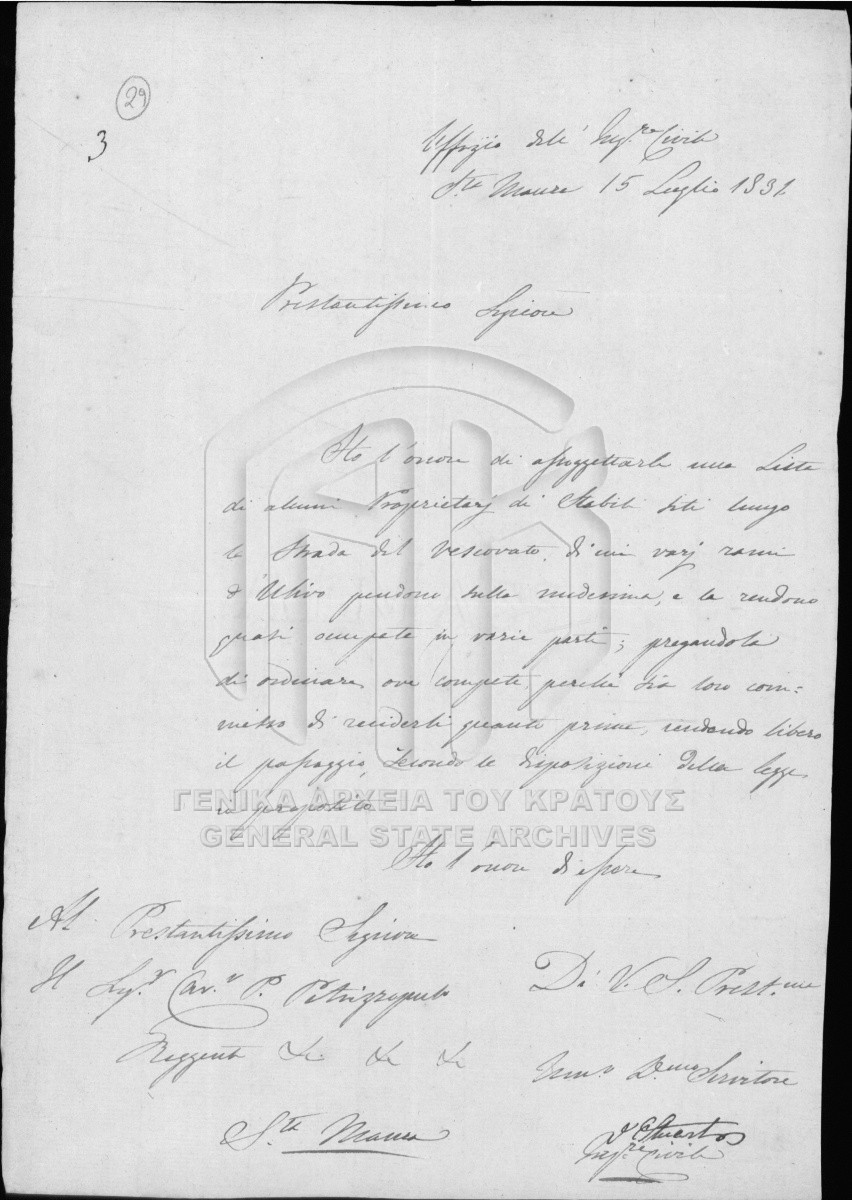 29
3
Uffizio dell' Ing.re Civile
S.ta Maura 15 Luglio 1831
Prestantissimo Signore
Ho l'onore di assoggettarle una Lista
di alcuni Proprietarj di Stabili siti lungo
la Strada del Vescovato, di cui varj rami
d'Ulivo pendono sulla medesima, e la rendono
quasi occupata in varie parti; pregandola
di ordinare, ove compete, perchè sia loro com=
messo di renderli quanto prima, rendendo libero
il passaggio, secondo le disposizioni della legge
in proposito
Ho l'onore di essere
Al Prestantissimo Signore
Il Sig.r Cav.r P. Petrizzopulo
Di V. S. Prest.ma
Reggente &c &c &c
Um.o D.mo Servitore
S.ta Maura
Ing.re Civile
ΓΕΝΙΚΑ ΑΡΧΕΙΑ ΤΟΥ ΚΡΑΤΟΥΣ
GENERAL STATE ARCHIVES